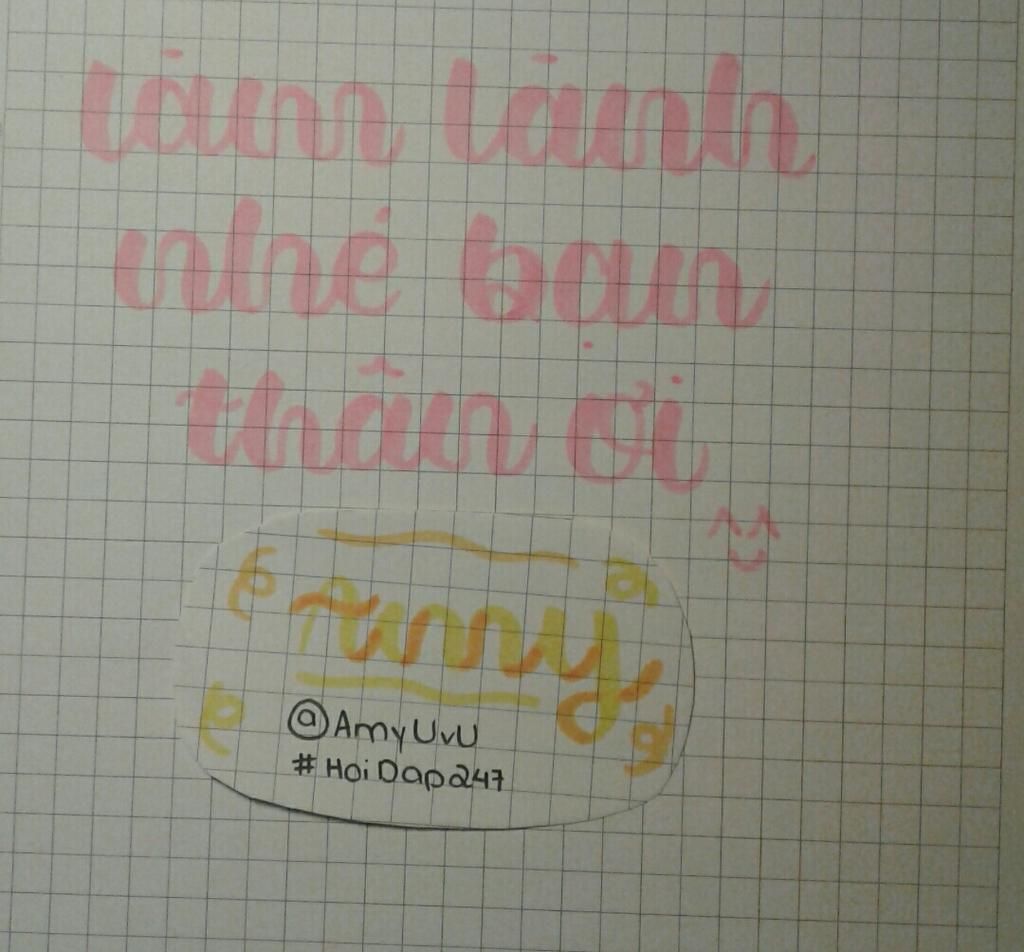 làm lành
nhé bạn
thân ơi
Amy
@AmyUvU
#HoiDap247